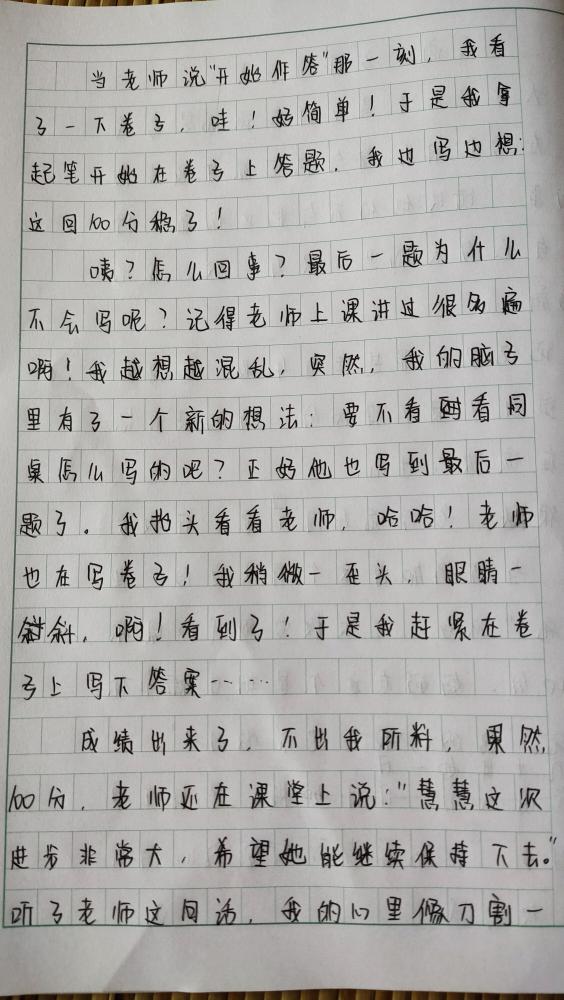 当老师说“开始作答”那一刻，我看
了一下卷子，哇！好简单！于是我拿
起笔开始在卷子上答题，我边写边想：
这回100分稳了！
咦？怎么回事？最后一题为什么
不会写呢？记得老师上课讲过很多遍
啊！我越想越混乱，突然，我的脑子
里有了一个新的想法：要不看看同
桌怎么写的吧？正好他也写到最后一
题了。我抬头看看老师，哈哈！老师
也在写卷子！我稍微一歪头，眼睛一
斜，啊！看到了！于是我赶紧在卷
子上写下答案……
成绩出来了，不出我所料，果然
100分，老师还在课堂上说：“慧慧这次
进步非常大，希望她能继续保持下去。”
听了老师这句话，我的心里像刀割一